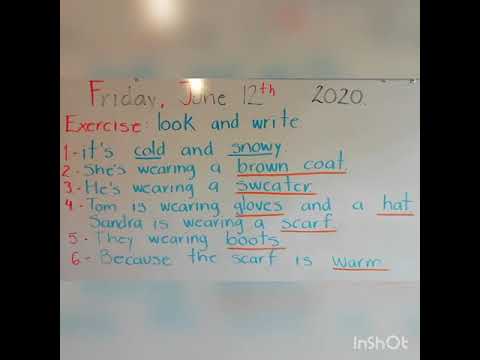 Friday, June 12th 2020.
Exercise: look and write
1- it's cold and snowy.
2- She's wearing a brown coat.
3- He's wearing a sweater
4- Tom is wearing gloves and a hat
Sandra is wearing a scarf
5- They wearing boots
6- Because the scarf is warm
InShOt